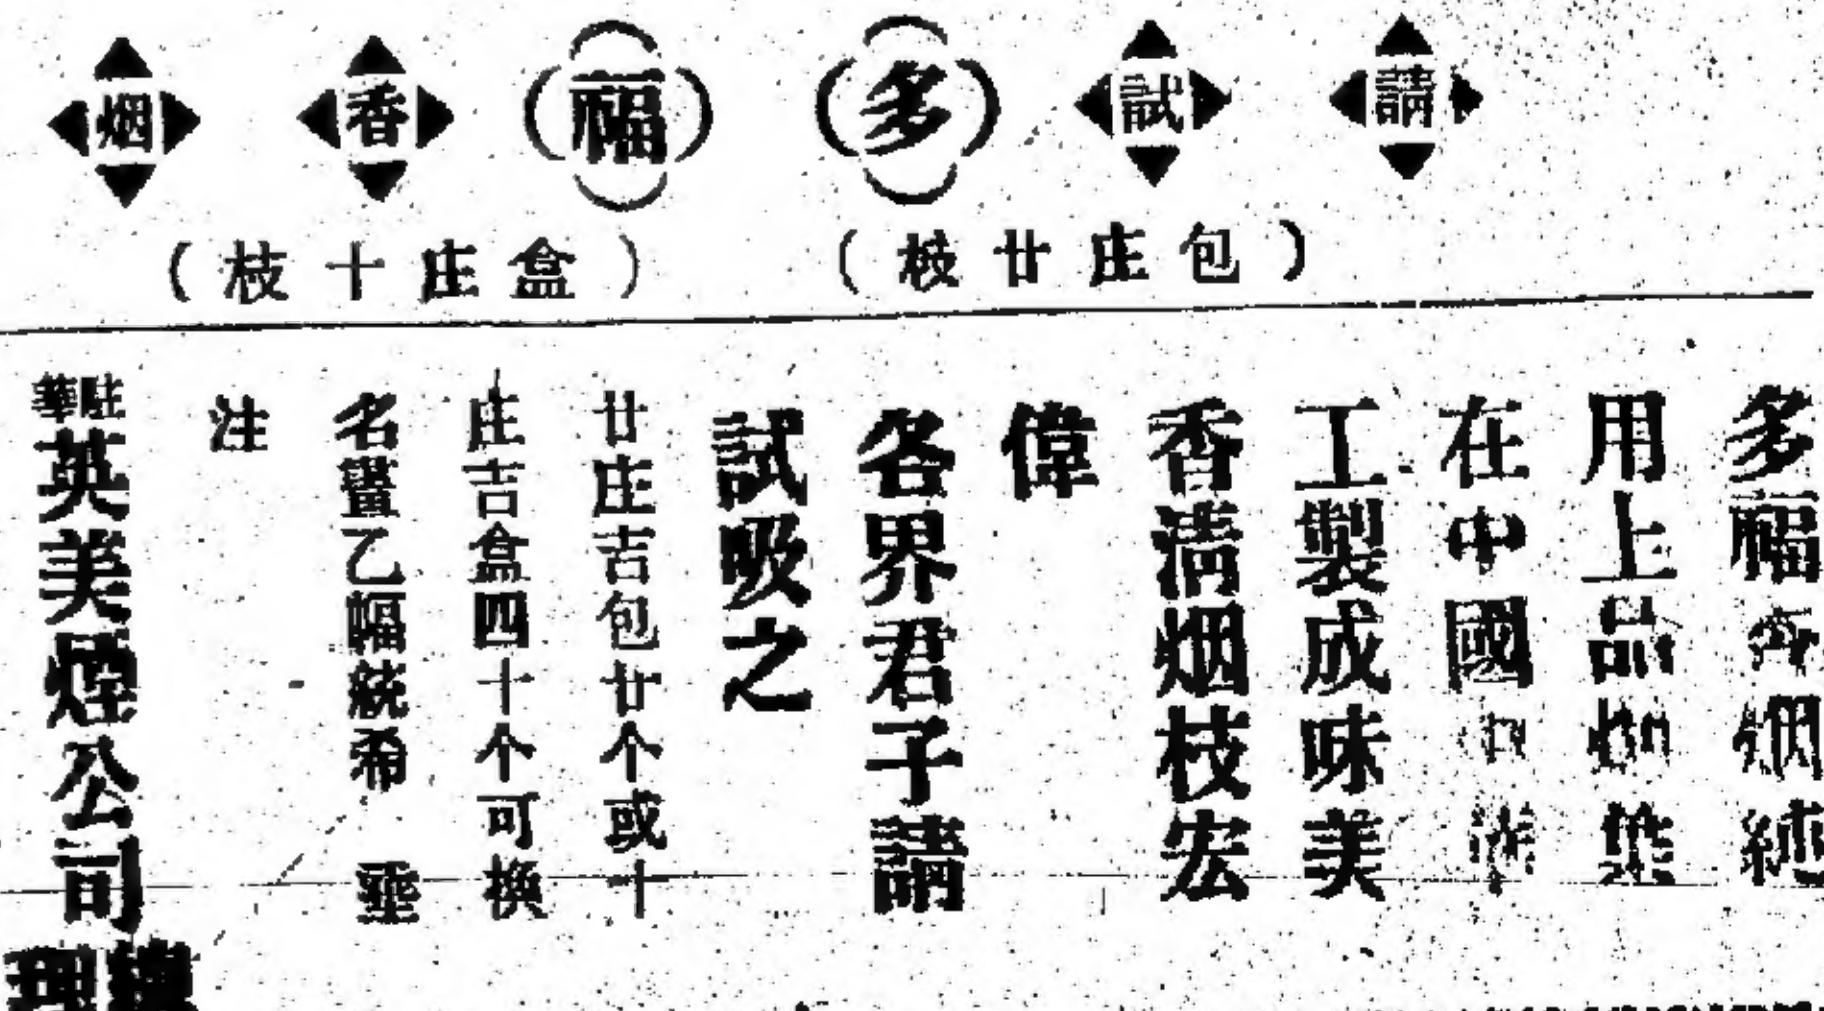 請試多福香烟
（包庄廿枝）
（盒庄十枝）
多福香烟純
用上品烟葉
在中國
工製成味美
香清烟枝宏
偉
各界君子請
試吸之
廿庄吉包廿个或十
庄吉盒四十个可換
名畫乙幅統希 垂
注
駐華英美煙公司總理